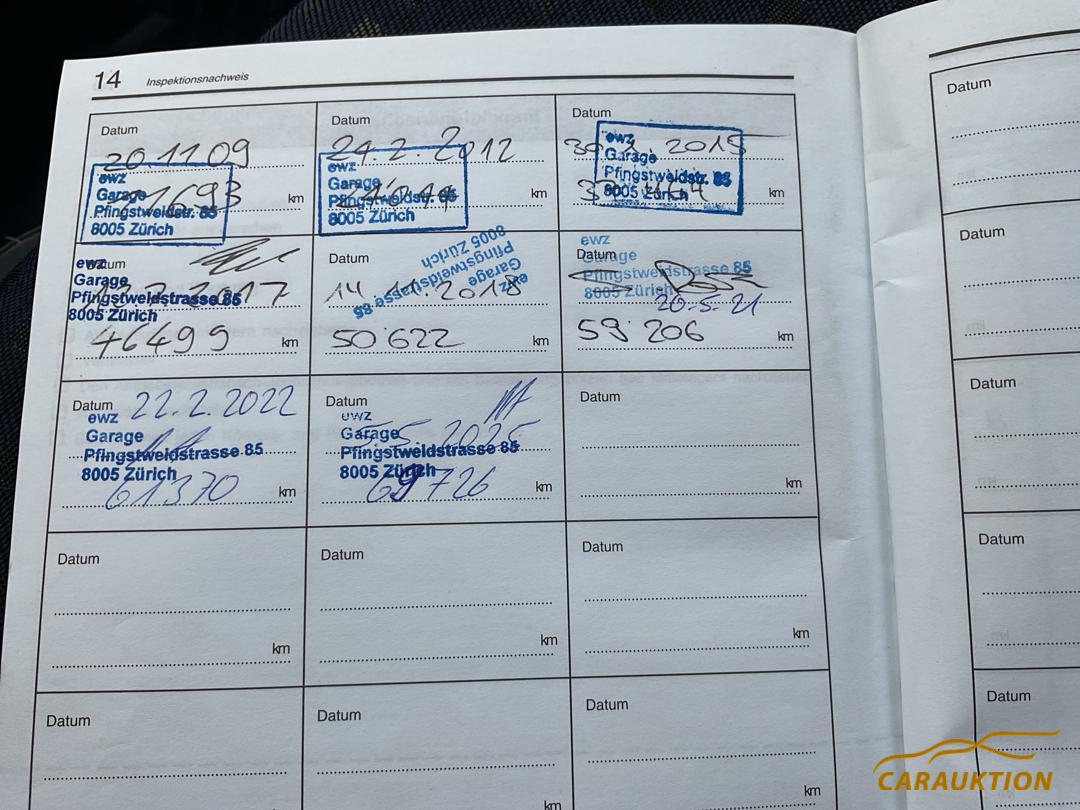 14 Inspektionsnachweis
Datum
20.11.09
ewz
Garage
Pfingstweidstr. 85
8005 Zürich
km
Datum
24.2.2012
ewz
Garage
Pfingstweidstr. 85
8005 Zürich
km
Datum
2015
ewz
Garage
Pfingstweidstr. 85
8005 Zürich
km
Datum
2017
ewz
Garage
Pfingstweidstrasse 85
8005 Zürich
46499 km
Datum
2018
ewz
Garage
Pfingstweidstrasse 85
8005 Zürich
50'622 km
Datum
ewz
Garage
Pfingstweidstrasse 85
8005 Zürich
20.5.21
59'206 km
Datum 22.2.2022
ewz
Garage
Pfingstweidstrasse 85
8005 Zürich
61370 km
Datum
5.5.2025
ewz
Garage
Pfingstweidstrasse 85
8005 Zürich
69726 km
Datum
km
Datum
km
Datum
km
Datum
km
Datum
Datum
km
Datum
km
Datum
Datum
Datum
Datum
Datum
CARAUKTION